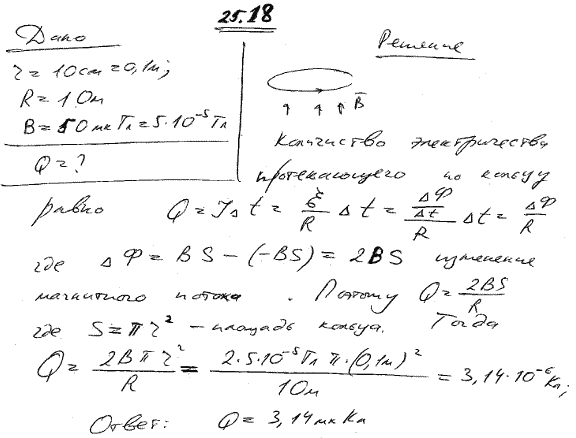 25.18
Дано
r = 10 см = 0,1 м;
R = 1 Ом
B = 50 мкТл = 5·10⁻⁵ Тл
Q = ?
Решение
B⃗
Количество электричества
протекающего по кольцу
равно Q = IΔt = ξ/R Δt = (ΔФ/Δt)/R Δt = ΔФ/R
где ΔФ = BS − (−BS) = 2BS изменение
магнитного потока. Поэтому Q = 2BS/R
где S = πr² – площадь кольца. Тогда
Q = 2Bπr²/R = 2·5·10⁻⁵ Тл π·(0,1 м)²/1 Ом = 3,14·10⁻⁶ Кл;
Ответ: Q = 3,14 мкКл